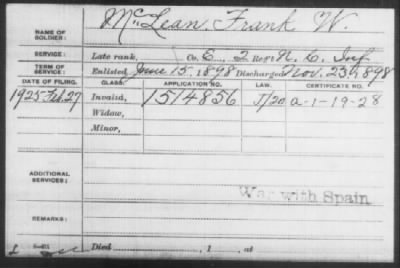 NAME OF SOLDIER: McLean, Frank W.
SERVICE: Late rank, Co. E, 2 Reg't N. C. Inf
TERM OF SERVICE: Enlisted June 15, 1898 Discharged Nov. 23, 1898
DATE OF FILING. CLASS. APPLICATION NO. LAW. CERTIFICATE NO.
1925 Feb. 27 Invalid, 1514856 J/20 a-1-19-28
Widow,
Minor,
ADDITIONAL SERVICES:
War with Spain
REMARKS:
Died , 1 , at